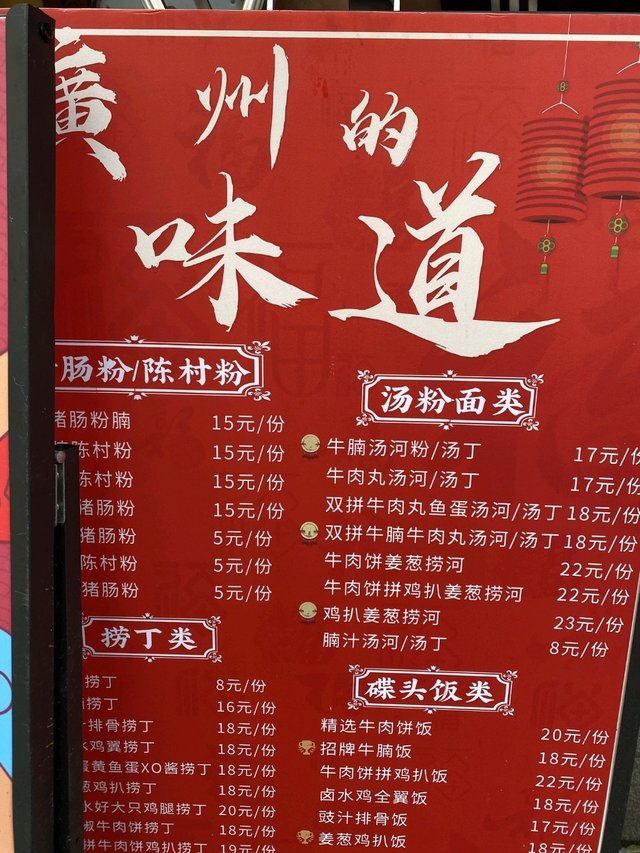 廣州的
味道
肠粉/陈村粉
猪肠粉腩 15元/份
陈村粉 15元/份
陈村粉 15元/份
猪肠粉 15元/份
猪肠粉 5元/份
陈村粉 5元/份
猪肠粉 5元/份
捞丁类
捞丁 8元/份
捞丁 16元/份
排骨捞丁 18元/份
水鸡翼捞丁 18元/份
蛋黄鱼蛋XO酱捞丁 18元/份
葱鸡扒捞丁 18元/份
水好大只鸡腿捞丁 20元/份
椒牛肉饼捞丁 18元/份
拼牛肉鸡扒捞丁 19元/份
汤粉面类
牛腩汤河粉/汤丁 17元/份
牛肉丸汤河/汤丁 17元/份
双拼牛肉丸鱼蛋汤河/汤丁 18元/份
双拼牛腩牛肉丸汤河/汤丁 18元/份
牛肉饼姜葱捞河 22元/份
牛肉饼拼鸡扒姜葱捞河 22元/份
鸡扒姜葱捞河 23元/份
腩汁汤河/汤丁 8元/份
碟头饭类
精选牛肉饼饭 20元/份
招牌牛腩饭 18元/份
牛肉饼拼鸡扒饭 22元/份
卤水鸡全翼饭 18元/份
豉汁排骨饭 17元/份
姜葱鸡扒饭 18元/份